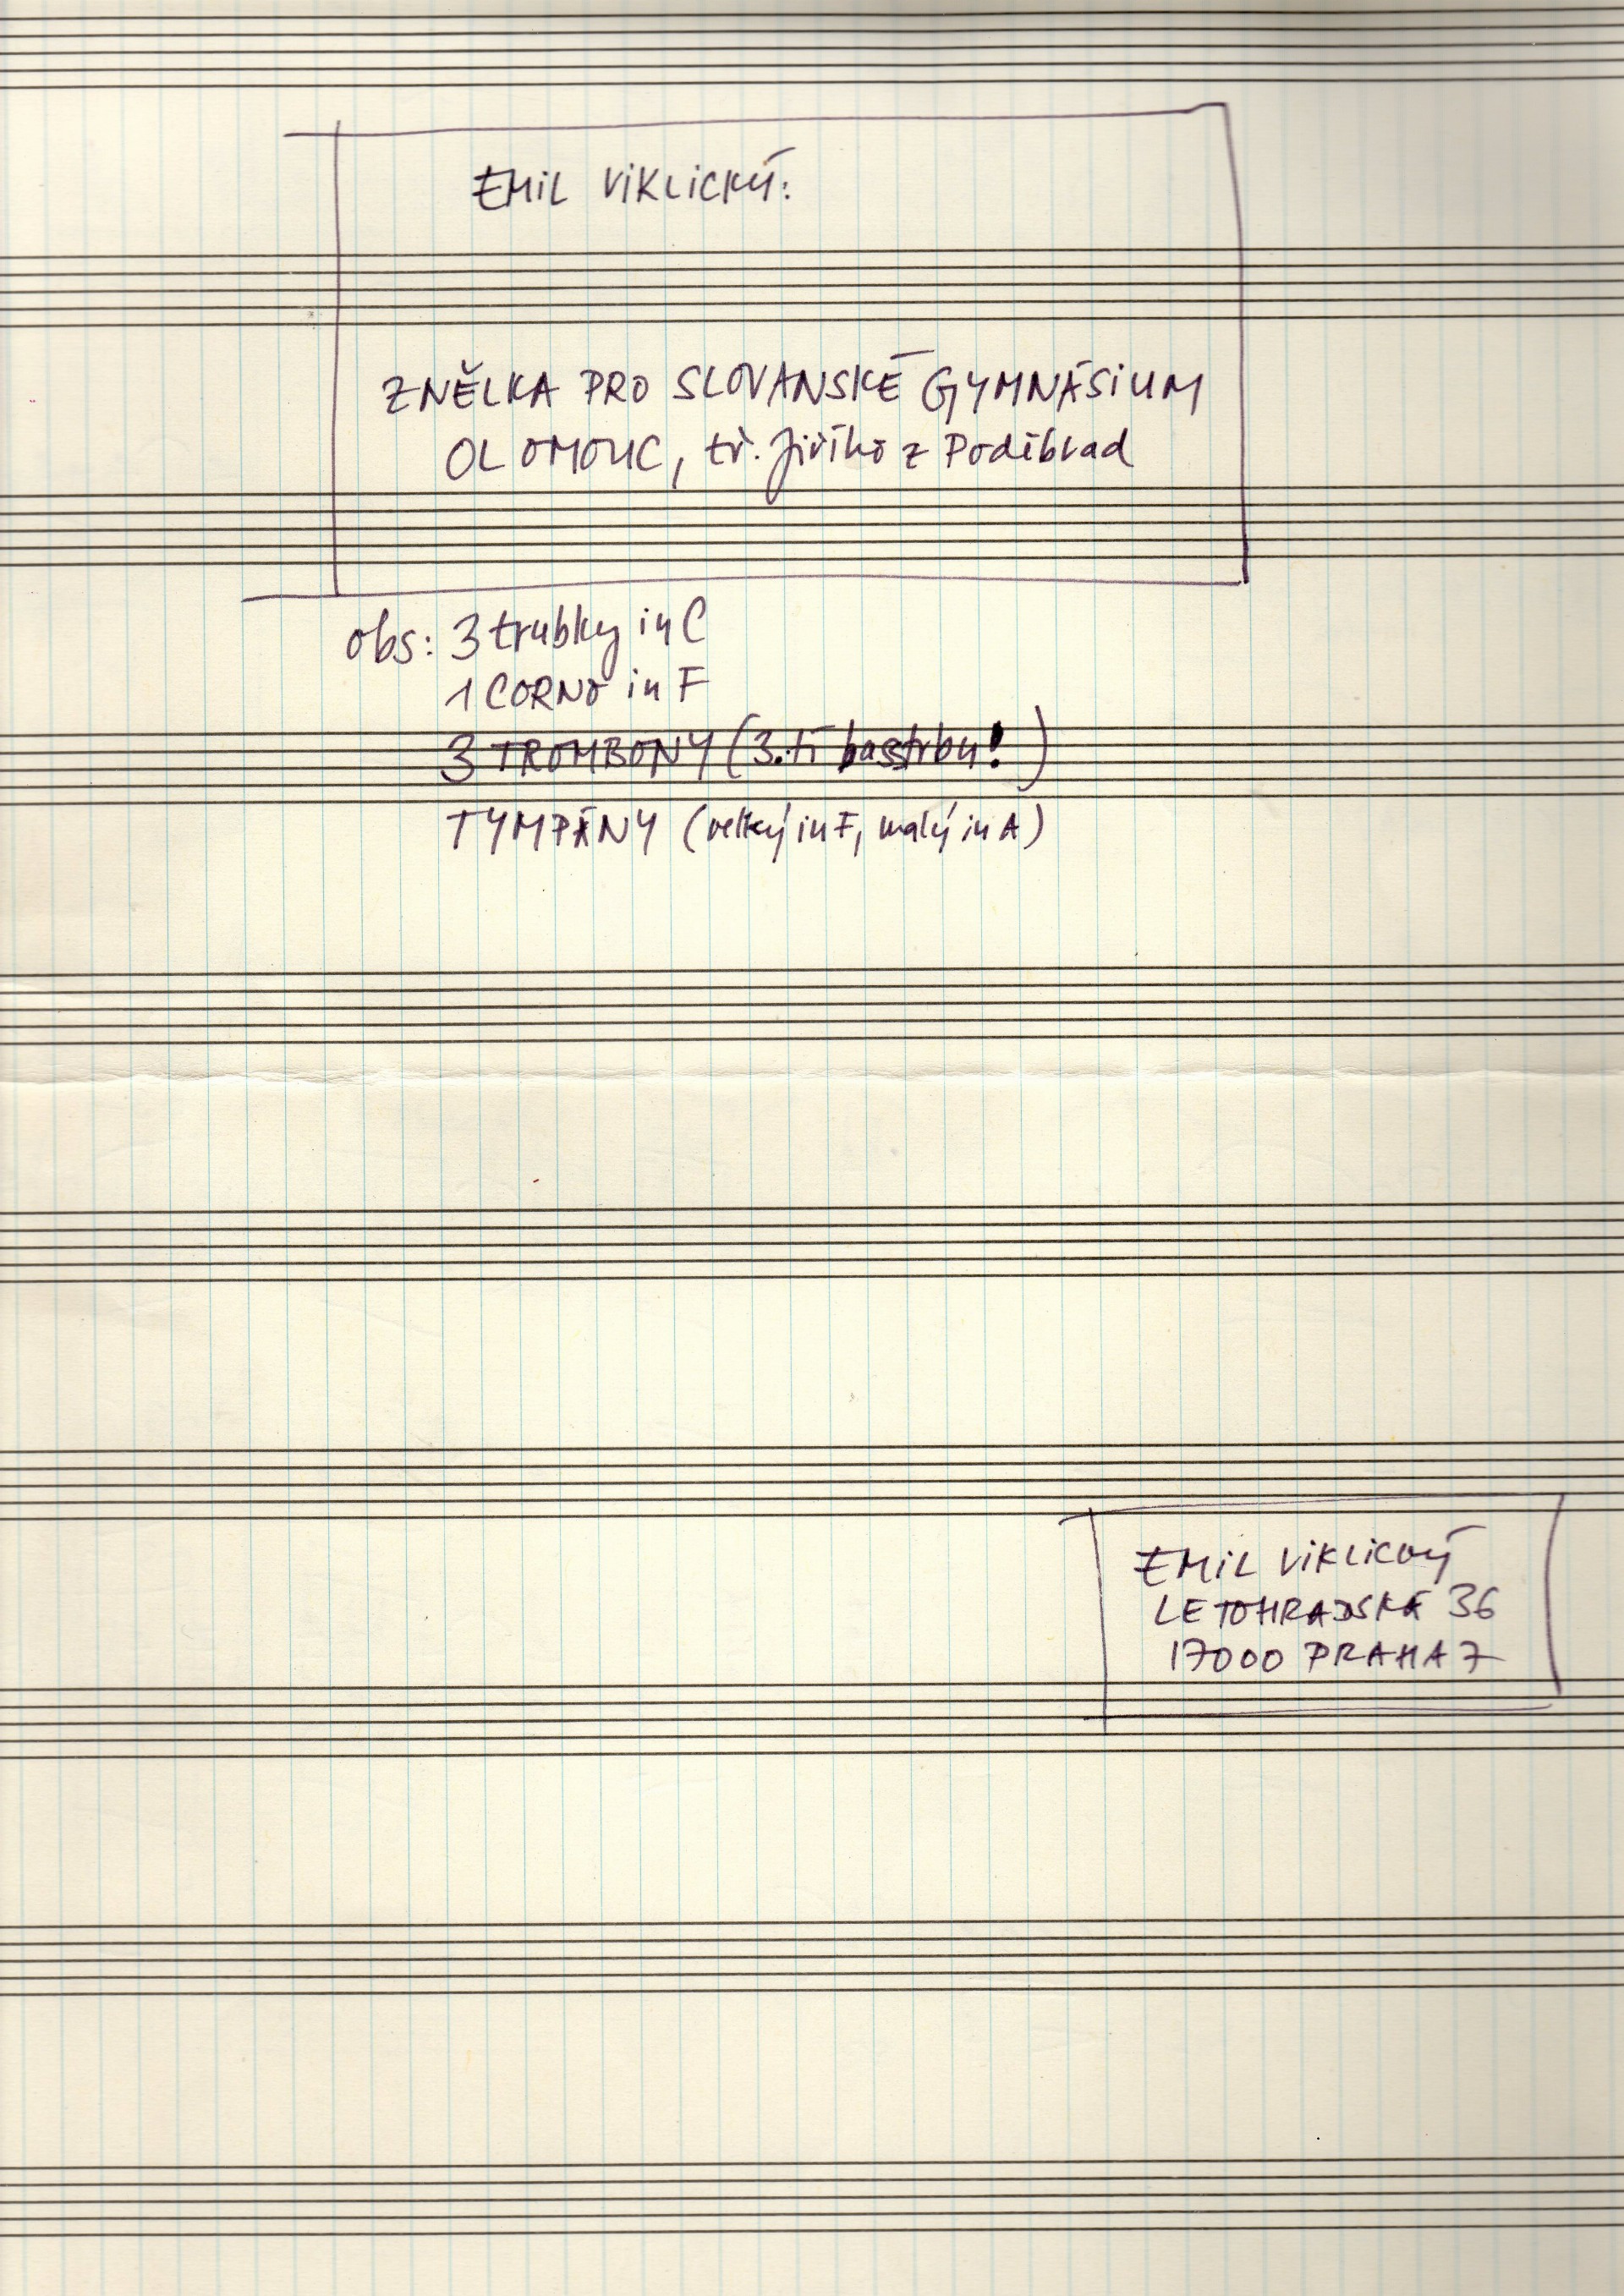 EMIL VIKLICKÝ:
ZNĚLKA PRO SLOVANSKÉ GYMNÁSIUM
OLOMOUC, tř. Jiřího z Poděbrad
obs: 3 trubky in C
1 CORNO in F
3 TROMBONY (3.tí bastrbn!)
TYMPÁNY (velký in F, malý in A)
EMIL VIKLICKÝ
LETOHRADSKÁ 36
17000 PRAHA 7